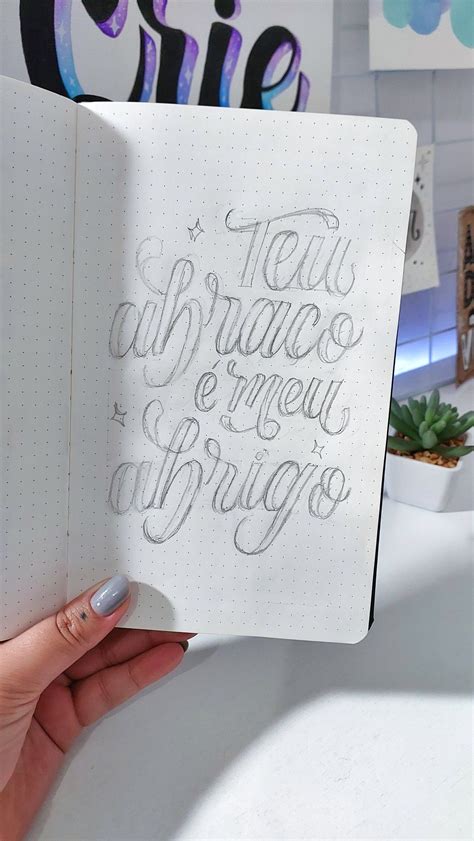 Crie
Teu
abraco
é meu
abrigo